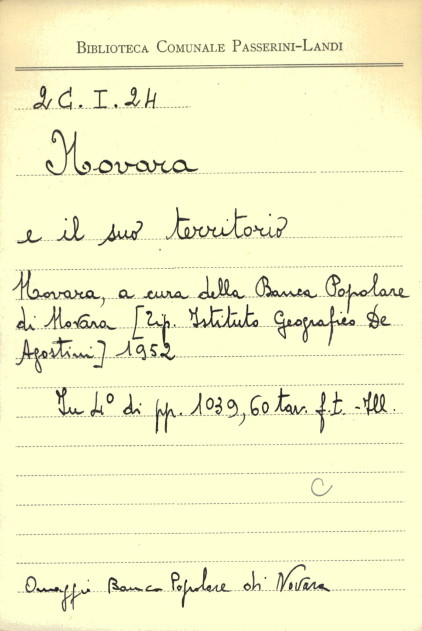 BIBLIOTECA COMUNALE PASSERINI-LANDI
2 G. I. 24
Novara
e il suo territorio
Novara, a cura della Banca Popolare
di Novara [Tip. Istituto Geografico De
Agostini] 1952
In 4° di pp. 1039, 60 tav. f.t. - Ill.
C
Omaggio Banca Popolare di Novara